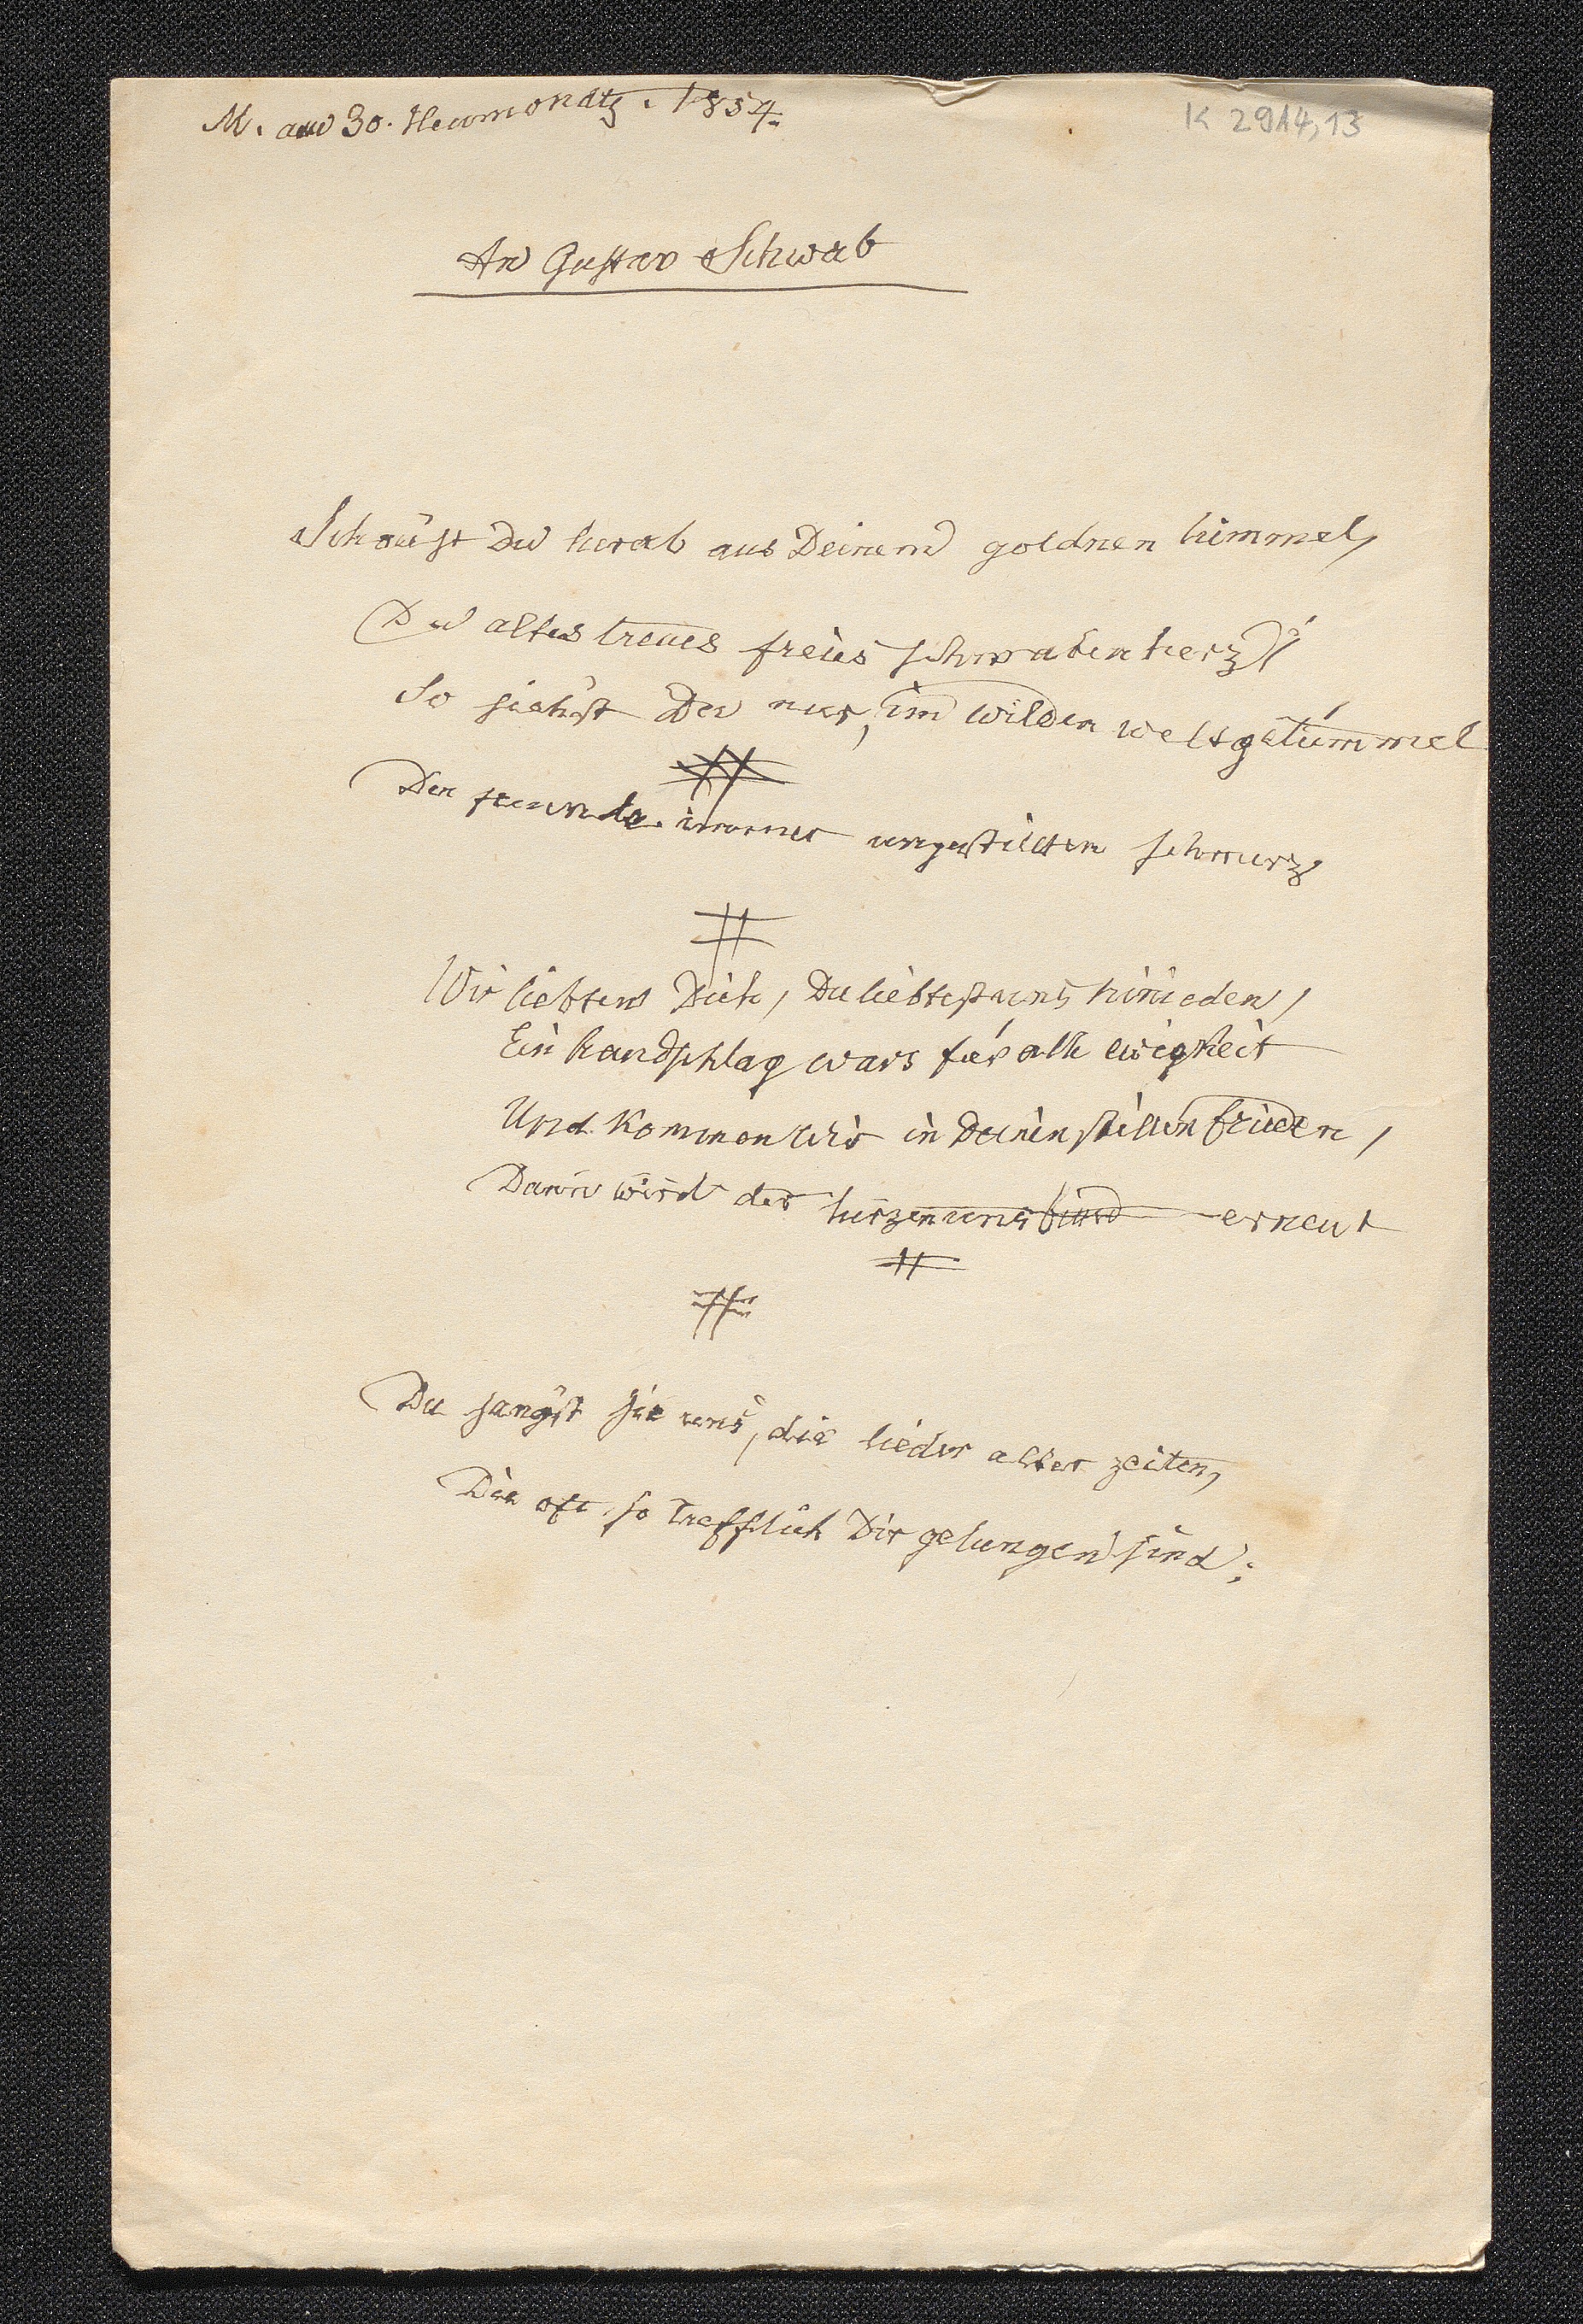 M. am 30. Heumondts. 1854.
K 2914,13
An Gustav Schwab
Schaust Du herab aus Deinem goldnen himmel,
Du altes treues freies schwabenherz!
So siehst Du nur, im wilden weltgetümmel
Der freunde immer ungestillten schmerz
Wir liebten Dich, Du liebtest uns hinieden,
Ein handschlag wars für alle ewigkeit
Und kommen wir in Deinen stillen frieden,
Dann wird der herzen uns bund erneut
Du sangst sie uns, die lieder alter zeiten,
Die oft so trefflich Dir gelungen sind;